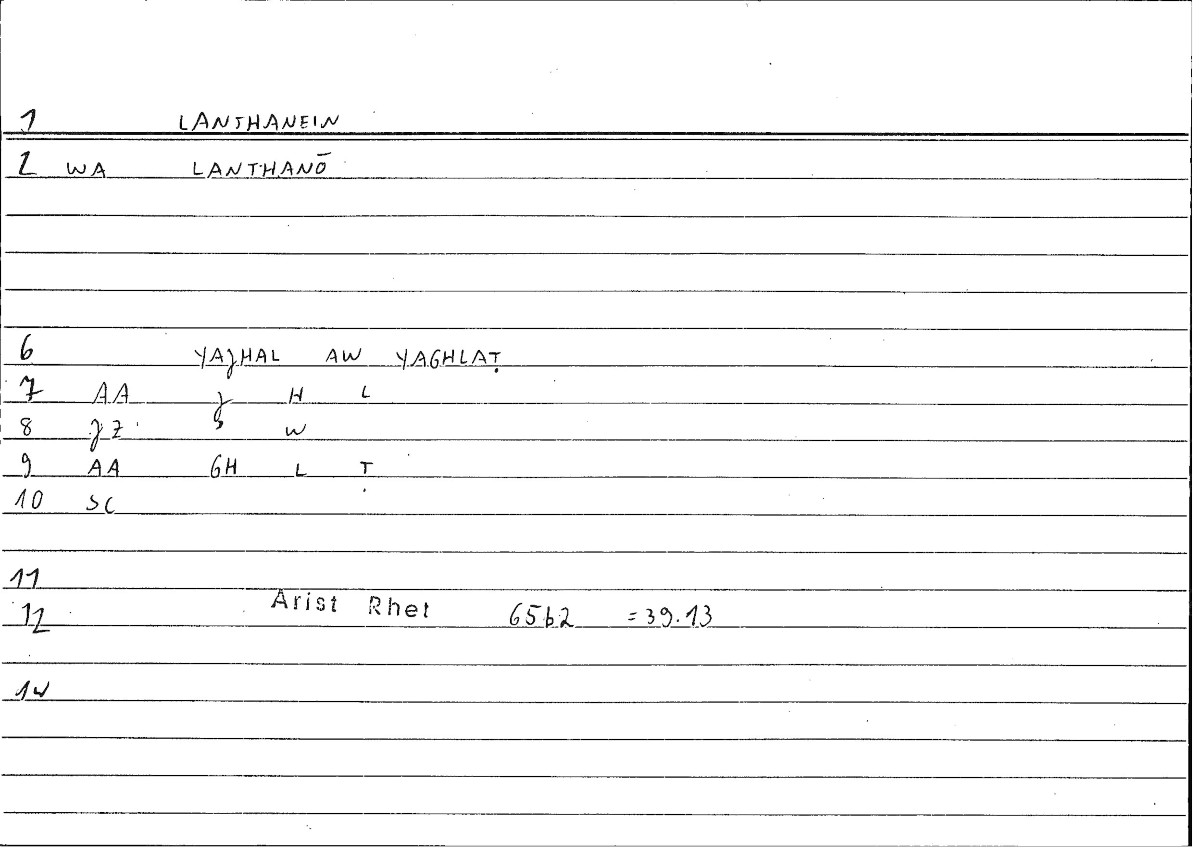 1 LANTHANEIN
2 WA LANTHANŌ
6 YAǧHAL AW YAGHLAṬ
7 AA ǧ H L
8 GZ W
9 AA GH L Ṭ
10 SC
11
12 Arist Rhet 65b2 =39.13